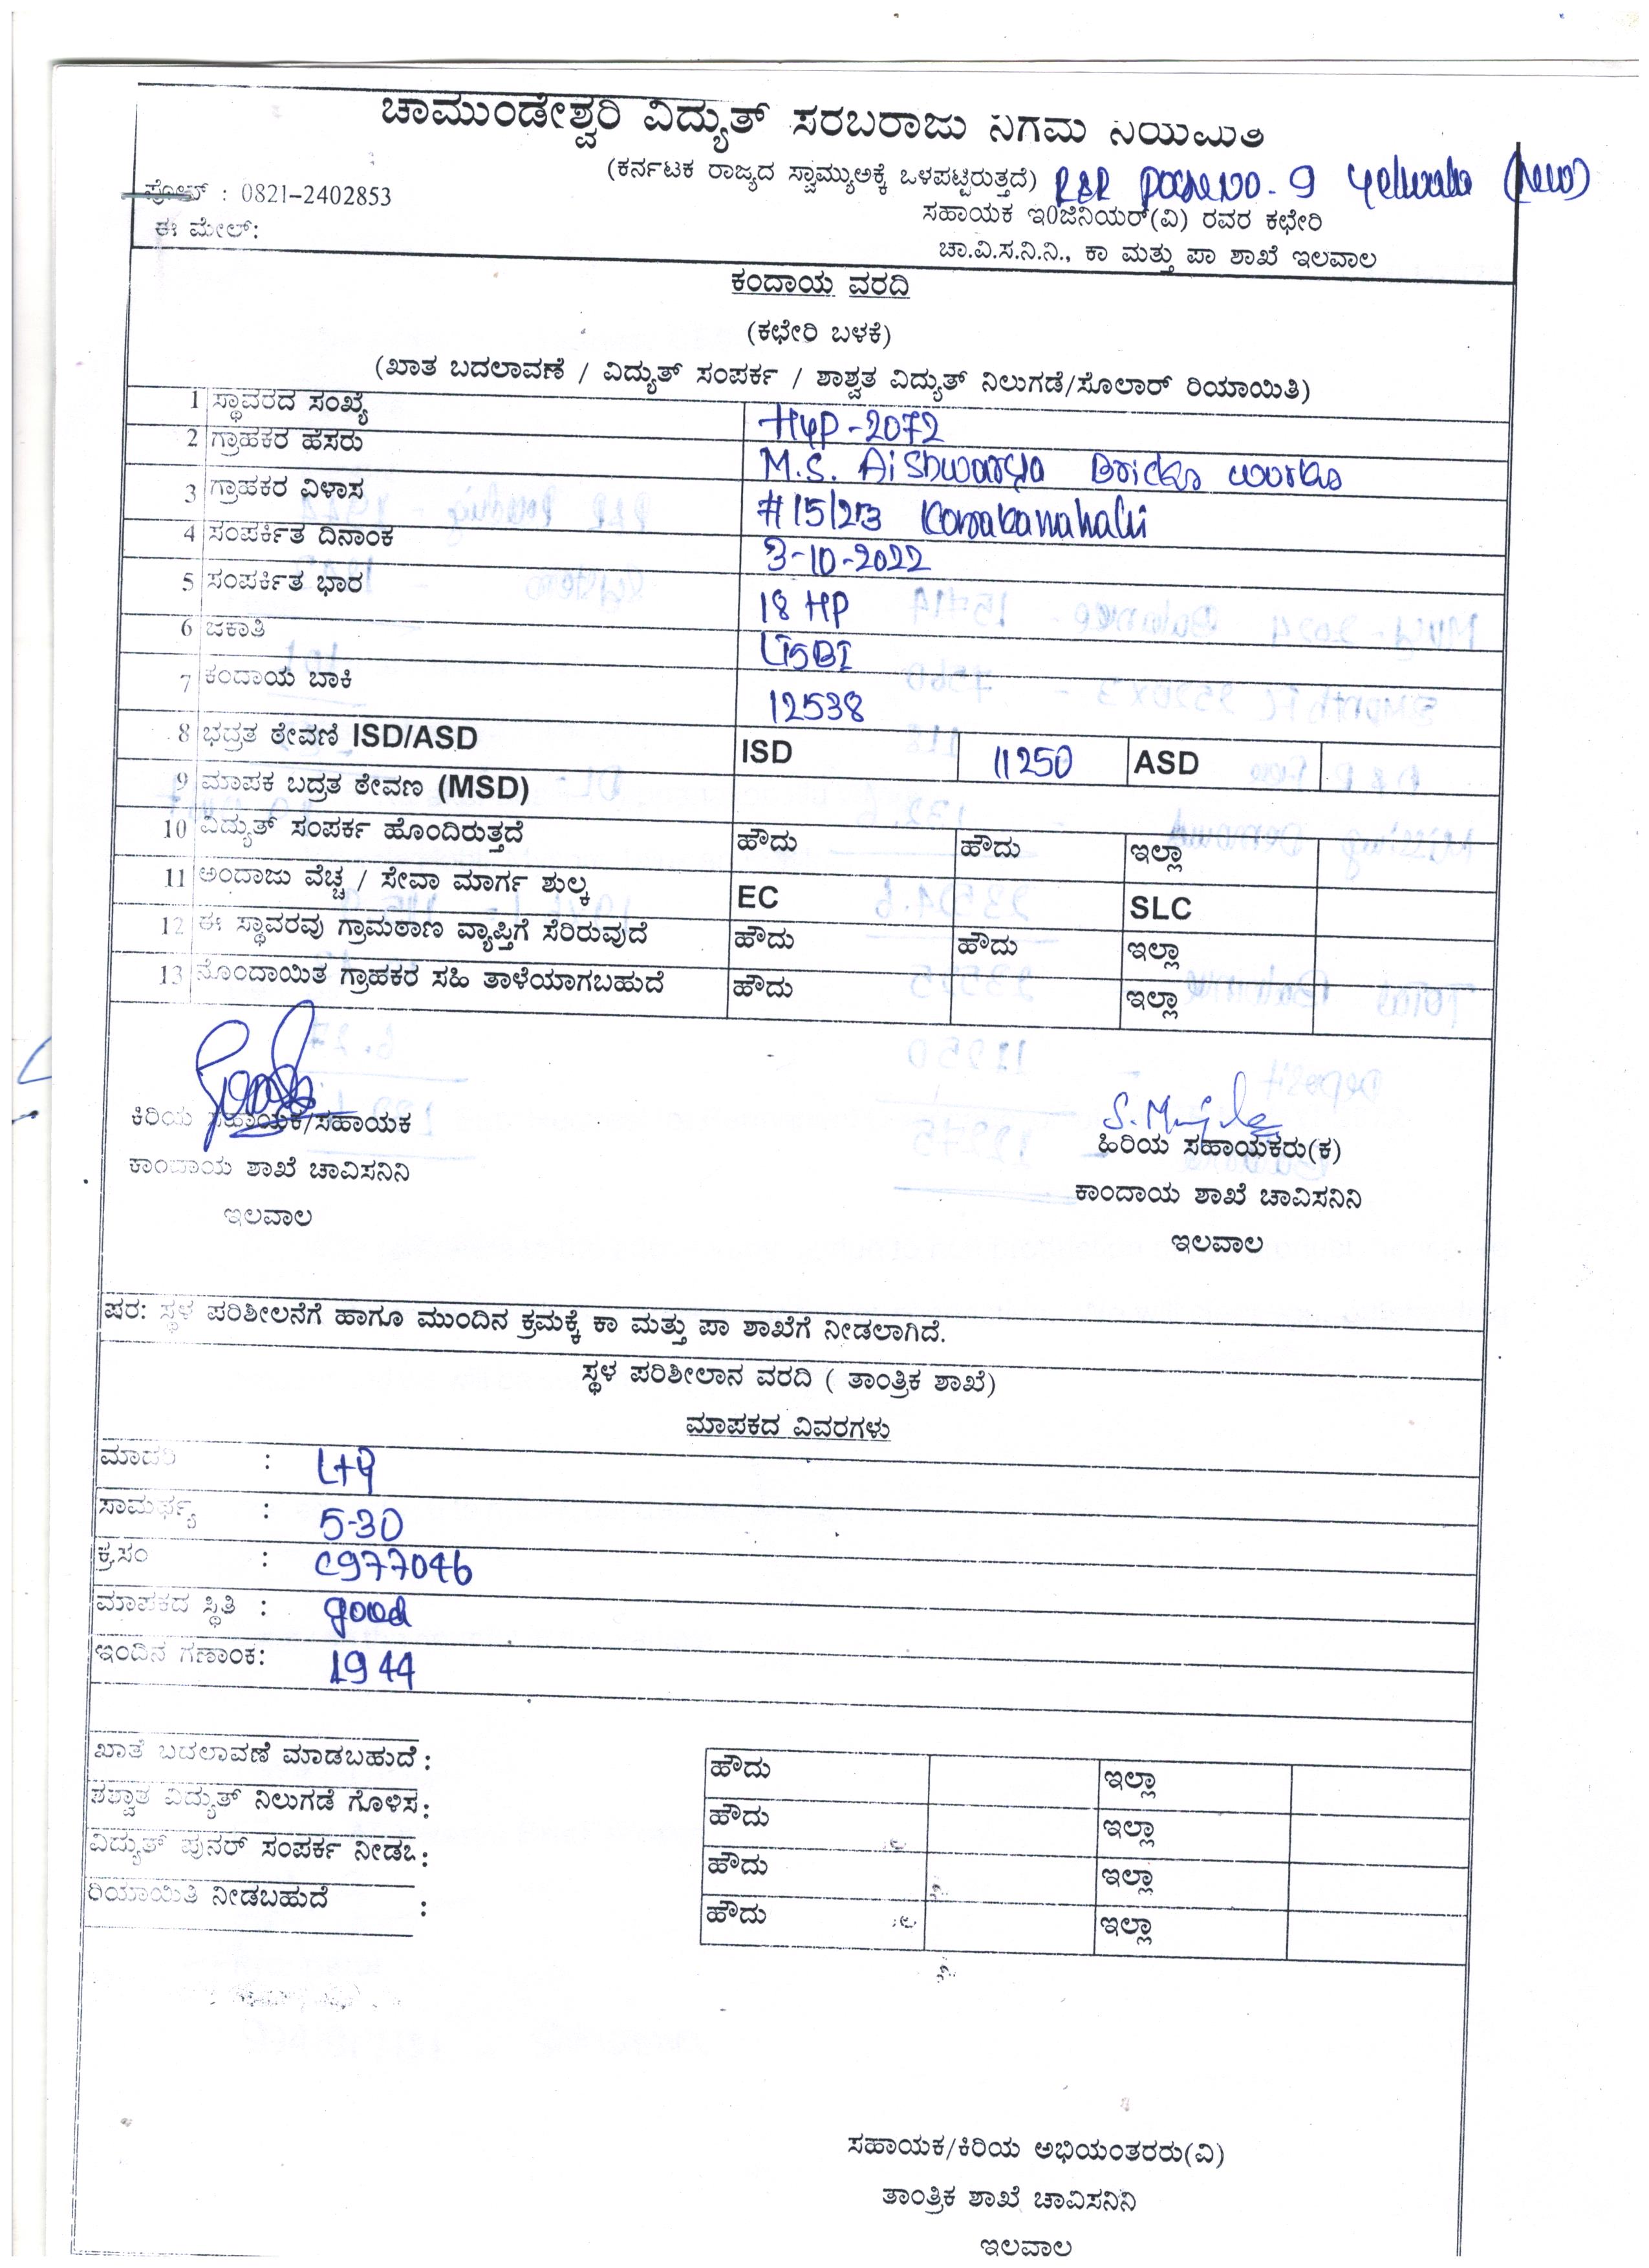 ಚಾಮುಂಡೇಶ್ವರಿ ವಿದ್ಯುತ್ ಸರಬರಾಜು ನಿಗಮ ನಿಯಮಿತ
(ಕರ್ನಟಕ ರಾಜ್ಯದ ಸ್ವಾಮ್ಯುಅಕ್ಕೆ ಒಳಪಟ್ಟಿರುತ್ತದೆ) R&R No-9 (New)
ಫೋನ್ : 0821-2402853
ಸಹಾಯಕ ಇ0ಜಿನಿಯರ್(ವಿ) ರವರ ಕಛೇರಿ
ಈ ಮೇಲ್:
ಚಾ.ವಿ.ಸ.ನಿ.ನಿ., ಕಾ ಮತ್ತು ಪಾ ಶಾಖೆ ಇಲವಾಲ
ಕಂದಾಯ ವರದಿ
(ಕಛೇರಿ ಬಳಕೆ)
(ಖಾತ ಬದಲಾವಣೆ / ವಿದ್ಯುತ್ ಸಂಪರ್ಕ / ಶಾಶ್ವತ ವಿದ್ಯುತ್ ನಿಲುಗಡೆ/ಸೊಲಾರ್ ರಿಯಾಯಿತಿ)
1 ಸ್ಥಾವರದ ಸಂಖ್ಯೆ HYP-2072
2 ಗ್ರಾಹಕರ ಹೆಸರು M.S. Aishwarya Bricks works
3 ಗ್ರಾಹಕರ ವಿಳಾಸ #15/213
4 ಸಂಪರ್ಕಿತ ದಿನಾಂಕ 3-10-2022
5 ಸಂಪರ್ಕಿತ ಭಾರ 18 HP
6 ಜಕಾತಿ
7 ಕಂದಾಯ ಬಾಕಿ 12538
8 ಭದ್ರತ ಠೇವಣಿ ISD/ASD ISD 11250 ASD
9 ಮಾಪಕ ಬದ್ರತ ಠೇವಣ (MSD)
10 ವಿದ್ಯುತ್ ಸಂಪರ್ಕ ಹೊಂದಿರುತ್ತದೆ ಹೌದು ಹೌದು ಇಲ್ಲಾ
11 ಅಂದಾಜು ವೆಚ್ಚ / ಸೇವಾ ಮಾರ್ಗ ಶುಲ್ಕ EC SLC
12 ಈ ಸ್ಥಾವರವು ಗ್ರಾಮಠಾಣ ವ್ಯಾಪ್ತಿಗೆ ಸೆರಿರುವುದೆ ಹೌದು ಹೌದು ಇಲ್ಲಾ
13 ನೊಂದಾಯಿತ ಗ್ರಾಹಕರ ಸಹಿ ತಾಳೆಯಾಗಬಹುದೆ ಹೌದು ಇಲ್ಲಾ
ಕಿರಿಯ ಸಹಾಯಕ/ಸಹಾಯಕ
ಹಿರಿಯ ಸಹಾಯಕರು(ಕ)
ಕಾಂದಾಯ ಶಾಖೆ ಚಾವಿಸನಿನಿ
ಕಾಂದಾಯ ಶಾಖೆ ಚಾವಿಸನಿನಿ
ಇಲವಾಲ
ಇಲವಾಲ
ಷರ: ಸ್ಥಳ ಪರಿಶೀಲನೆಗೆ ಹಾಗೂ ಮುಂದಿನ ಕ್ರಮಕ್ಕೆ ಕಾ ಮತ್ತು ಪಾ ಶಾಖೆಗೆ ನೀಡಲಾಗಿದೆ.
ಸ್ಥಳ ಪರಿಶೀಲಾನ ವರದಿ ( ತಾಂತ್ರಿಕ ಶಾಖೆ)
ಮಾಪಕದ ವಿವರಗಳು
ಮಾದರಿ :
ಸಾಮರ್ಥ್ಯ : 5-30
ಕ್ರ.ಸಂ : C977046
ಮಾಪಕದ ಸ್ಥಿತಿ : good
ಇಂದಿನ ಗಣಾಂಕ: 1944
ಖಾತೆ ಬದಲಾವಣೆ ಮಾಡಬಹುದೆ : ಹೌದು ಇಲ್ಲಾ
ಶಶ್ವಾತ ವಿದ್ಯುತ್ ನಿಲುಗಡೆ ಗೊಳಿಸ : ಹೌದು ಇಲ್ಲಾ
ವಿದ್ಯುತ್ ಪುನರ್ ಸಂಪರ್ಕ ನೀಡಬ : ಹೌದು ಇಲ್ಲಾ
ರಿಯಾಯಿತಿ ನೀಡಬಹುದೆ : ಹೌದು ಇಲ್ಲಾ
ಸಹಾಯಕ/ಕಿರಿಯ ಅಭಿಯಂತರರು(ವಿ)
ತಾಂತ್ರಿಕ ಶಾಖೆ ಚಾವಿಸನಿನಿ
ಇಲವಾಲ